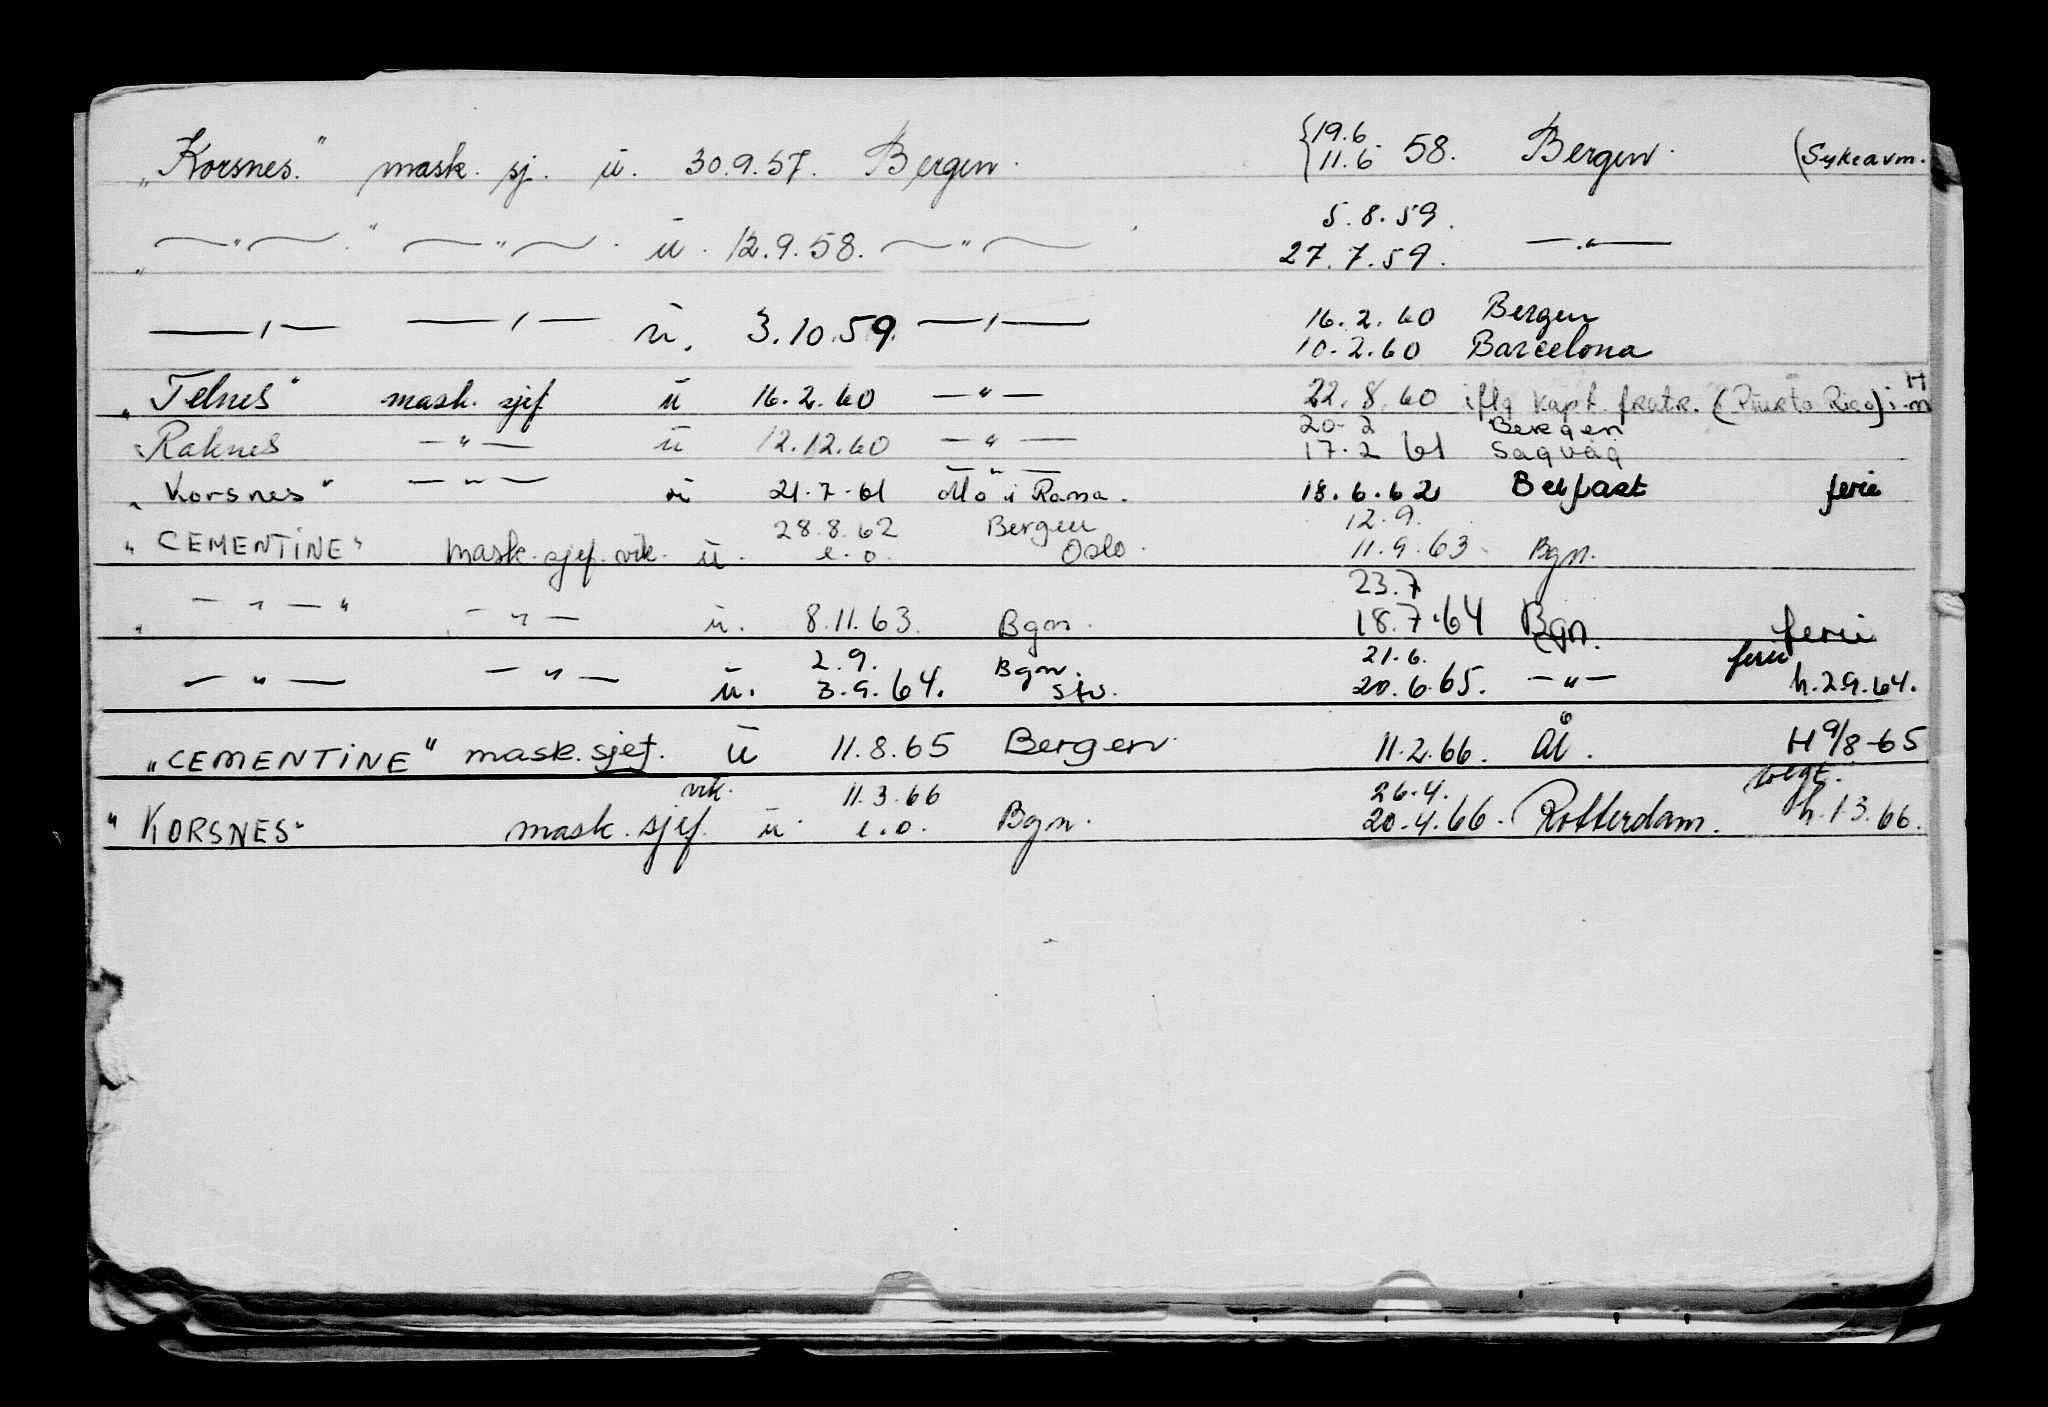 „Korsnes." mask. sj. ü. 30.9.57. Bergen. {19.6 11.6 58. Bergen. (Sykeavm.
„ — " — . " — " — . ü. 12.9.58. — " — 5.8.59. 27.7.59. — " —
— ' — — ' — ü. 3.10.59. — ' — 16.2.60 Bergen
10.2.60 Barcelona
„Telnes" mask. sjef ü 16.2.60 — " — 22.8.60 iflg kapt. fratr. (Puerto Rico)
20-2 Bergen
Raknes — " — ü 12.12.60 — " — 17.2 61 Sagvåg
„Korsnes" — " — ü 21.7.61 Mo i Rana. 18.6.62 Belfast ferie
28.8.62 Bergen 12.9.
„CEMENTINE" mask. sjef. vik. ü. e.o. Oslo. 11.9.63. Bgn.
23.7
„ — " — " — " — ü. 8.11.63. Bgn. 18.7.64 Bgn. ferie
2.9. Bgn. 21.6. ferie
— " — — " — ü. 3.9.64. Stv. 20.6.65. — " — h.2.9.64.
„CEMENTINE" mask. sjef. ü 11.8.65 Bergen 11.2.66. Ål. H 9/8-65
vik. 11.3.66 26.4.
"KORSNES" mask. sjef. ü. e.o. Bgn. 20.4.66. Rotterdam. h.1.3.66.